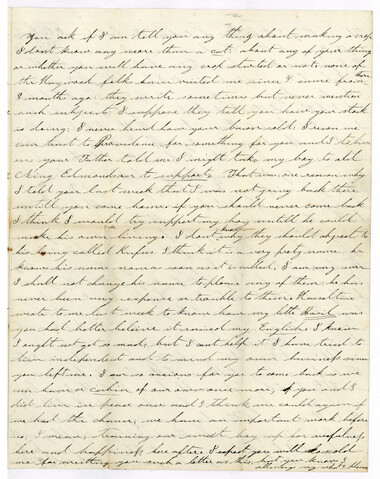 You ask if I am told you any thing about making a crop
I dont know any more than a cat about any of your things
or whether you will have any crop divided or not none of
the Haywood folk have visited me since I came from there
3 months ago they write some times but never mention
such subjects. I suppose they tell you how your stock
is doing I never heard how your bacon sold. I recon we
can trust to Providence for something for you and I to live
on your Father told me I might take my boy to old
King Edmundson to support. That was one reason why
I told you last week that I was not going back there
untill you come home, if you should never come back
I think I would try support my boy untill he could
make his own living. I dont know why they should object to
his being called Rufus I think it is a very pretty name he
knows his name soon as soon as it is called, I am my own
I shall not change his name to please any of them he has
never been any expense or trouble to them.
wrote to me last week to know how my little was
you had better believe it raised my English. I know
I ought not get so mad, but I cant help it I have tried to
live independent and to mind my own business since
you left me. I am so anxious for you to come back so we
can have a cabin of our own once more, if you and I
did live in peace once and I think we could again if
we had the chance, we have an important work before
us, I mean, training our sweet boy up for usefulness
here and happiness here after. I expect you will scold
me for writting you such a letter as this, but you know I
allways say what I please